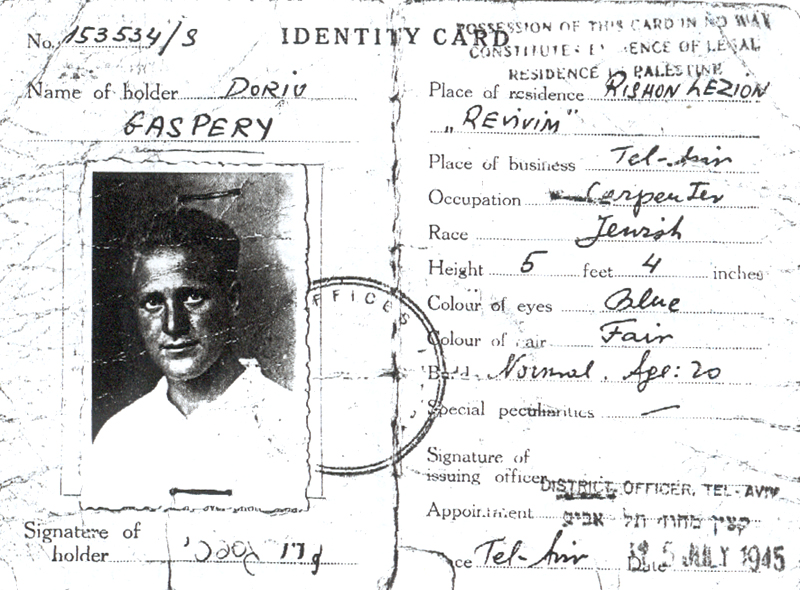 No. 153534/S
IDENTITY CARD
Name of holder DORIV
GASPERY
OFFICES
Signature of
holder
POSSESSION OF THIS CARD IN NO WAY
CONSTITUTES EVIDENCE OF LEGAL
RESIDENCE IN PALESTINE
Place of residence RISHON LEZION
„REVIVIM"
Place of business Tel-Aviv
Occupation Carpenter
Race Jewish
Height 5 feet 4 inches
Colour of eyes Blue
Colour of hair Fair
Build Normal. Age: 20
Special peculiarities —
Signature of
issuing officer
DISTRICT OFFICER, TEL-AVIV
Appointment קצין מחוזי תל-אביב
Place Tel-Aviv Date 5 JULY 1945